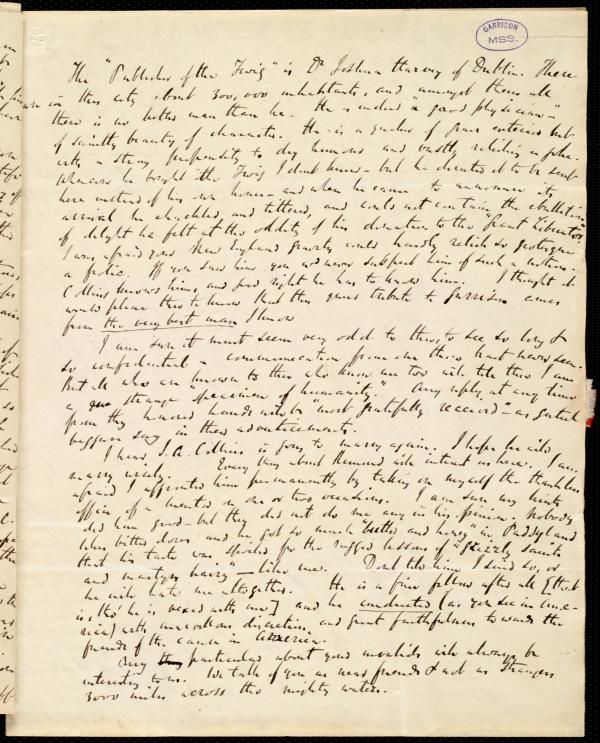 GARRISON
MSS.
The "Publisher of the Twig" is Dr Joshua Harvey of Dublin. There
are in this city about 300,000 inhabitants, and amongst them all
there is no better man than he. He is indeed a "good physician"
of saintly beauty of character. He is a quaker of grave exterior but
with a strong propensity to dry humour and vastly relishing a joke.
Whenever he bought the Twig I don't know - but he directed it to be sent
here instead of his own home - and when he came to announce its
arrival he chuckled, and tittered, and could not contain the ebullition
of delight he felt at the oddity of his donation to the "Great Liberator"
I was afraid your New England gravity could hardly relish so grotesque
a frolic. If you saw him you would never suspect him of such a
Collins knows him, and good right he has to know him. I thought it
would please thee to know that this queer tribute to Garrison comes
from the very best man I know
I am sure it must seem very odd to thee, to see so long &
so confidential a communication from one thou hast never seen.
But all who are known to thee who know me too will tell thee I am
a strange specimen of humanity. Any reply, at any time
from thy honored hands will be "most gratefully received" - as
beggars say in their advertisements.
I hear J.A. Collins is going to marry again. I hope he will
marry nicely. Every thing about Remond will interest us here. I am
afraid I affronted him permanently by taking on myself the thankless
office of a mentor on one or two occasions. I am sure my hints
did him good - but they did not do me any in his opinion. Nobody
likes bitter doses and he got so much "butter and honey" in Paddyland
that his taste was spoiled for the rugged lessons of "grizzly saints
and martyrs hairy" - like me. Don't tell him I said so, or
he will hate me altogether. He is a fine fellow after all [that
is, tho' he is vexed with me] and he conducted (as you see in Ame-
rica) with marvellous discretion and great faithfulness to wards the
friends of the cause in America.
Any particulars about your worthies will always be
interesting to us. We talk of you as near friends & not as strangers
3000 miles across the mighty waters.